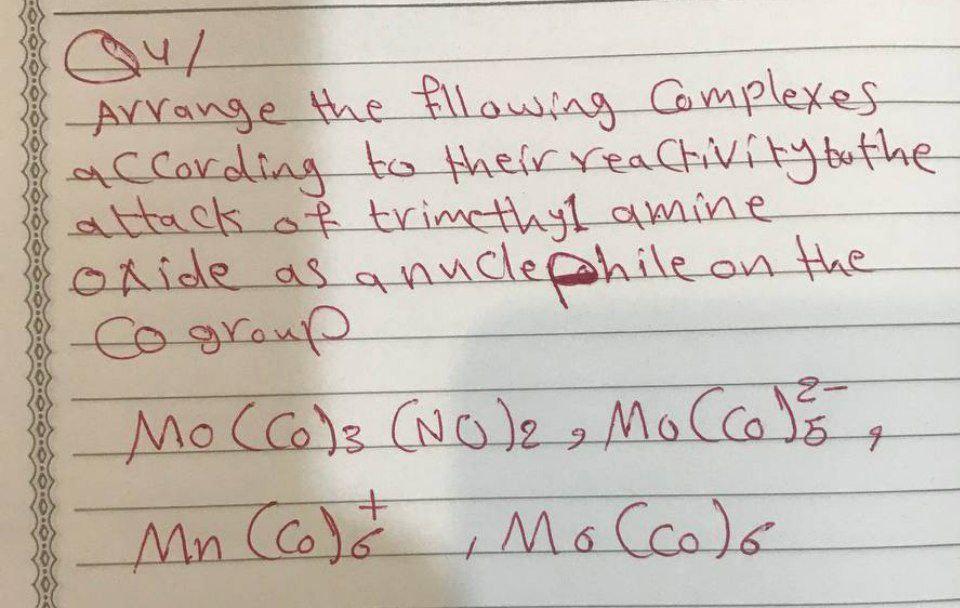 Q4/
Arrange the fllowing Complexes
according to their reactivity to the
attack of trimethyl amine
oxide as a nuclephile on the
Co group
Mo(Co)3 (NO)2, Mo(Co)5^2-,
Mn(Co)6^+, Mo(Co)6